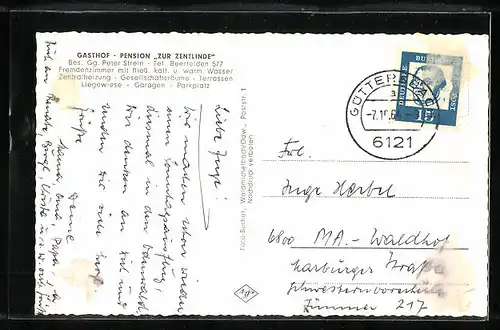 GASTHOF - PENSION „ZUR ZENTLINDE"
Bes. Gg. Peter Strein - Tel. Beerfelden 577
Fremdenzimmer mit fließ. kalt. u. warm. Wasser
Zentralheizung - Gesellschaftsräume - Terrassen
Liegewiese - Garagen - Parkplatz
Liebe Inge!
Wir machen schon wieder
einen Sonntagsausflug,
diesmal in den Odenwald,
Wir denken an Dich und
senden Dir viele
Grüße
Deine
Mama, Oma, Papa
Foto Bucher, Waldmichelbach/Odw., Poststr. 1
Nachdruck verboten
Agfa
DEUTSCHE BUNDESPOST
15
GÜTTERSBACH
a
-7.10.64
6121
Frl.
Inge Herbel
6800 MA.- Waldhof
Marburger Straße
Schwesternvorschule
Zimmer 217